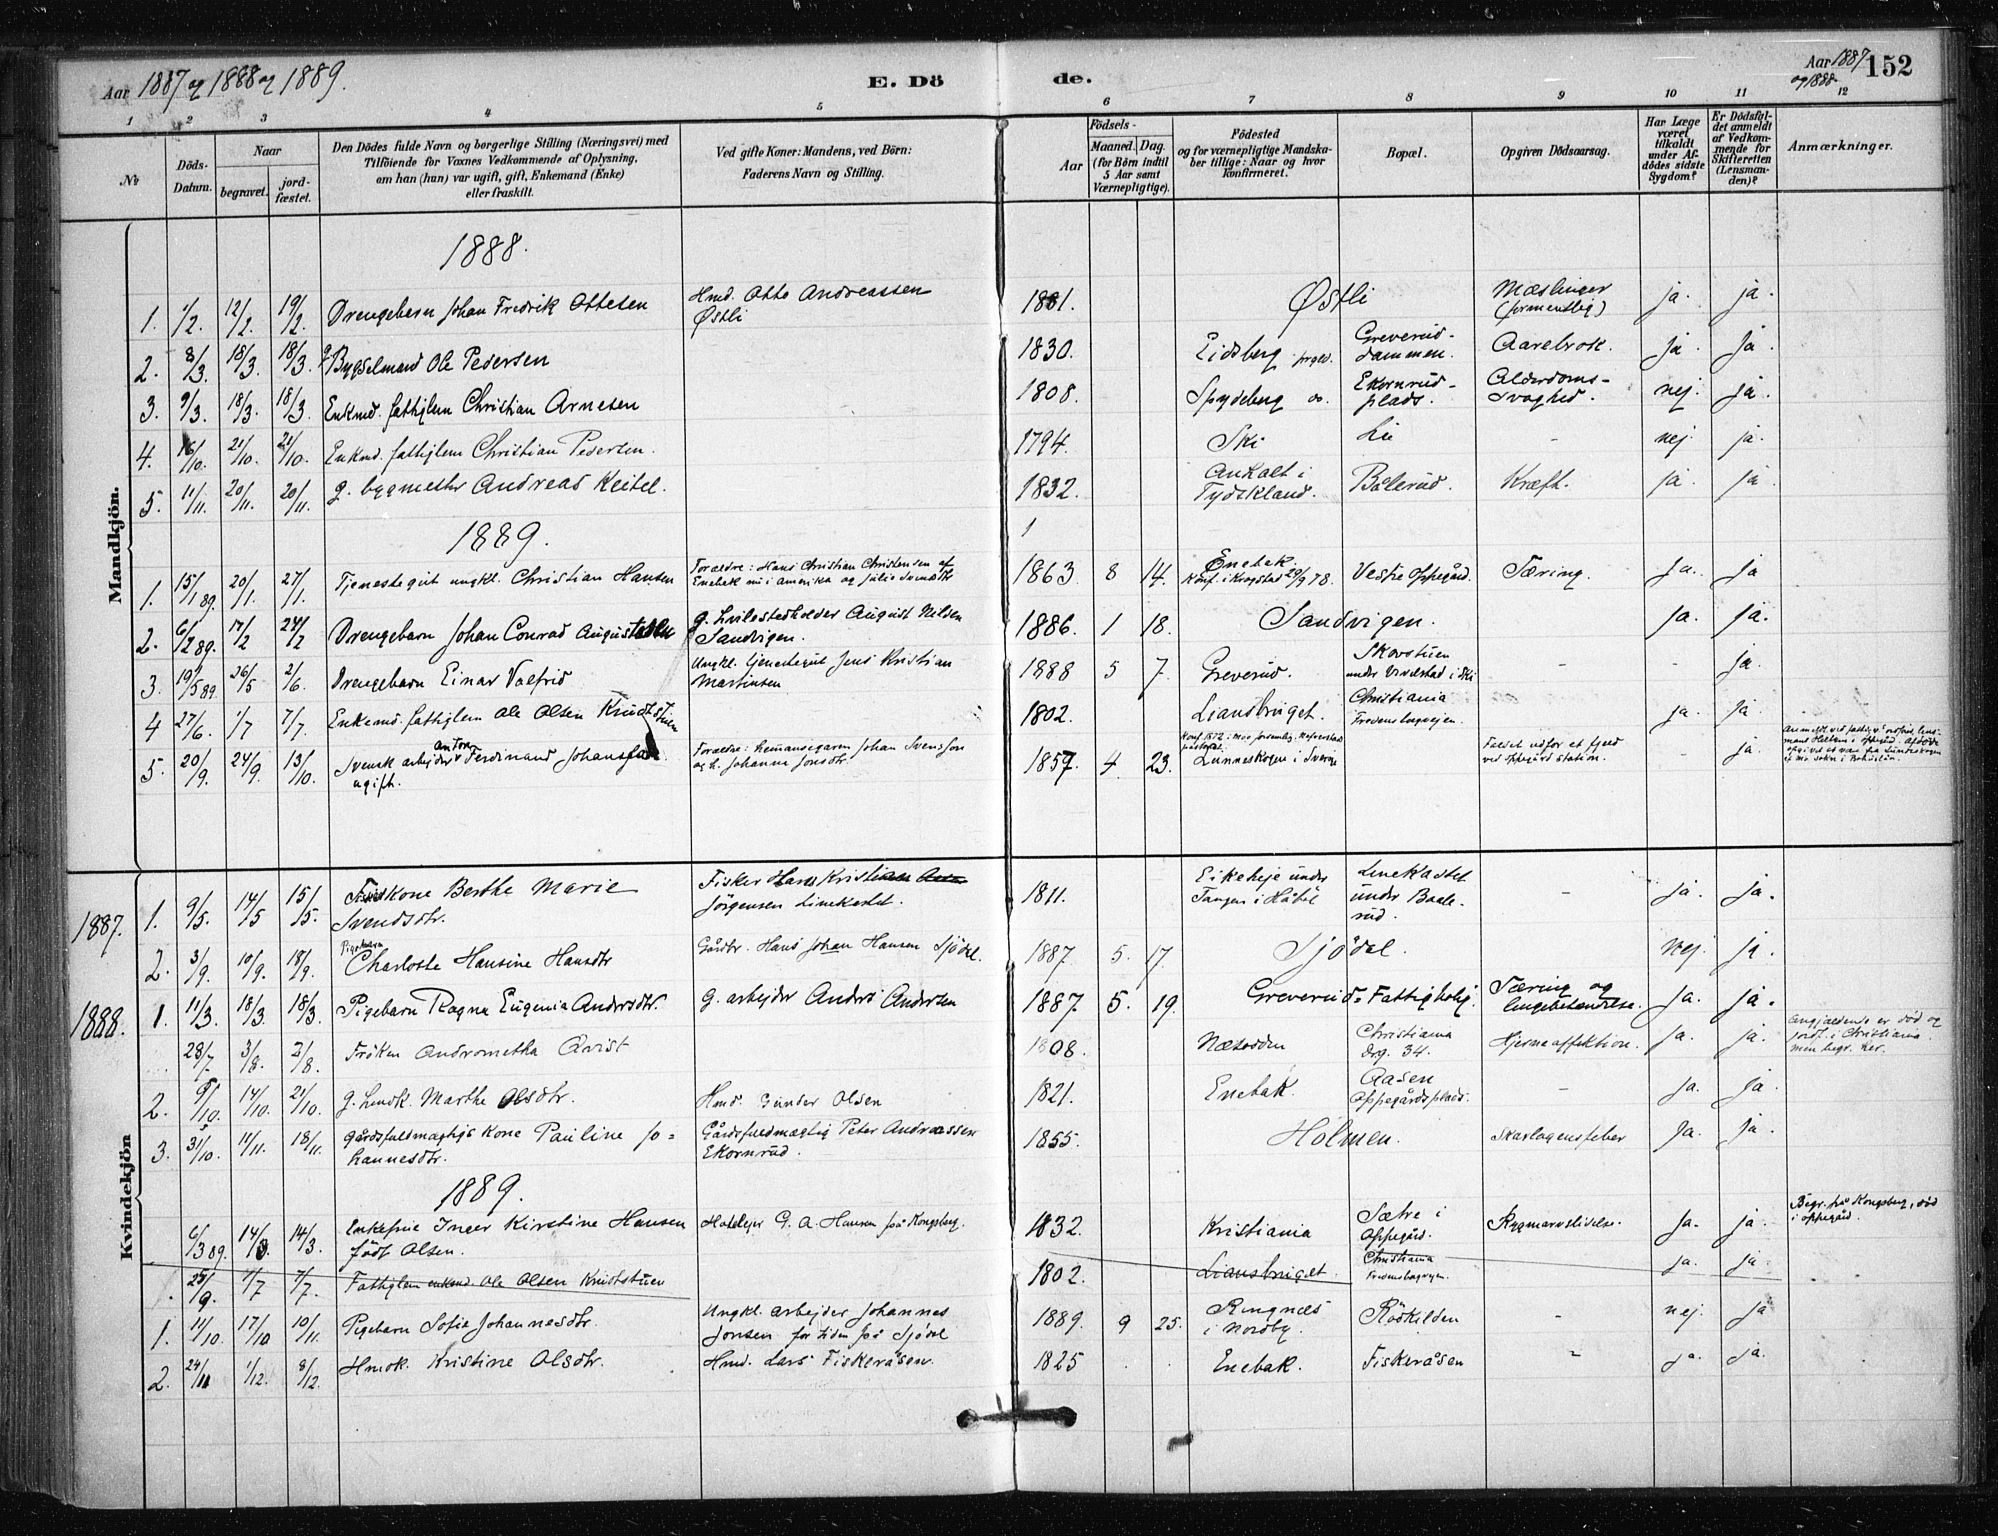 Aar 1887 og 1888 og 1889.
E. Dö
de.
Aar 1887 og 1888.
152
1 2 3 4 5 6 7 8 9 10 11 12
No
Döds-Datum.
Naar
begravet.
jordfæstet.
Den Dödes fulde Navn og borgerlige Stilling (Næringsvei) med
Tilföiende for Voxnes Vedkommende af Oplysning,
om han (hun) var ugift, gift, Enkemand (Enke)
eller fraskilt.
Ved gifte Koner: Mandens, ved Börn:
Faderens Navn og Stilling.
Födsels-
Aar
Maaned. Dag.
(for Börn indtil
5 Aar samt
Værnepligtige).
Födested
og for værnepligtige Mandskaber tillige: Naar og hvor
Konfirmeret.
Bopæl.
Opgiven Dödsaarsag.
Har Læge
været
tilkaldt
under Afdödes sidste
Sygdom?
Er Dödsfaldet anmeldt
af Vedkommende for
Skifteretten
(Lensmanden)?
Anmærkninger.
Mandkjön.
1888.
1. 1/2. 12/2. 19/2. Drengebarn Johan Fredrik Ottesen Hmd. Otto Andreassen Østli 1881. Østli Mæslinger (formentlig) ja. ja.
2. 8/3. 18/3. 18/3. g. Bygselmand Ole Pedersen 1830. Eidsberg prgld. Greverud-dammen. Aarebrok. ja ja.
3. 9/3. 18/3. 18/3. Enkmd. fattiglem Christian Arnesen 1808. Spydeberg do. Ekornrud-plads. Alderdoms-svaghed. nej. ja.
4. 16/10. 21/10. 21/10. Enkmd. fattiglem Christian Pedersen. 1794. Ski Lie - nej. ja.
5. 11/11. 20/11. 20/11. g. bygmester Andreas Keitel. 1832. Ankalt i Tydskland. Bålerud. Kræft. ja. ja.
1889.
1. 15/1 89. 20/1. 27/1. Tjenestegut ungkl. Christian Hansen Forældre: Hans Christian Christensen af Enebak nu i Amerika og Julie Svendsdtr 1863 8 14. Enebak. Konf. i Kragstad 29/9 78. Vestre Oppegård. Tæring. Ja. ja
2. 6/2 89. 17/2 24/2 Drengebarn Johan Conrad Augustsen g. Hvilestedholder August Nilsen Sandvigen. 1886. 1 18. Sandvigen. ja. ja.
3. 19/5 89. 26/5 2/6. Drengebarn Einar Valfrid Ungkl. tjenestegut Jens Kristian Martinsen 1888 5 7. Greverud. Skovstuen under Vevelstad i Ski - - ja.
4 27/6. 1/7 7/7. Enkemd. fattiglem Ole Olsen Knudtstuen 1802. Liansbruget. Christiania Fredensborgvejen. ja. ja.
5. 20/9. 24/9. 13/10. Svensk arbejder Anton Ferdinand Johansson ugift. Forældre: hemansegaren Johan Svensson og h. Johanna Jonsdtr. 1857. 4 23. Konf. 1872 i Moe forsamlig. Lunneskogen i Sverige Faldet udfor et fjeld ved Oppegård station. - ja.
Kvindekjön
1887. 1. 9/5. 14/5 15/5. Fiskkone Berthe Marie Svendsdtr. Fisker Hans Kristian Jörgensen Linekastet. 1811. Eikeheje under Tangen i Håböl Linekastet under Baalerud. - ja. ja.
2. 3/9. 10/9. 18/9. Pigebarn Charlotte Hansine Hansdtr Gårdbr. Hans Johan Hansen Sjödal. 1887. 5. 17. Sjödal. nej. ja.
1888. 1. 11/3. 18/3. 18/3. Pigebarn Ragna Eugenia Andersdtr. g. arbejder Anders Andersen 1887. 5. 19. Greverud. Fattigbolig. Tæring og lungebetændelse. Ja. ja.
28/7 3/8. 2/8. Fröken Andrometha Qvist 1808. Næsodden Christiania Drg. 34. Hjerneaffektion. Ja. ja. Angjældende er död og jordf. i Christiania men begr. her.
2. 9/10. 14/10. 21/10. g. hmdk. Marthe Olsdtr. Hmd. Gunder Olsen 1821. Enebak. Aasen Oppegårdsplads. - Ja. ja
3. 31/10. 11/11. 18/11. Gårdsfuldmægtigs kone Pauline Johannesdtr. Gårdsfuldmægtig Peter Andreassen Ekornrud. 1855. Holmen. Skarlagensfeber Ja. ja.
1889.
6/3 89. 14/3. 14/3. Enkefrue Inger Kirstine Hansen født Olsen. Hotelejer G. A. Hansen på Kongsberg. 1832. Kristiania Sætre i Oppegård. Rygmarvslidelse. Ja. ja. Begr. på Kongsberg, död i Oppegård.
25/9. 1/7 7/7. Fattiglem enkmd. Ole Olsen Knudstuen 1802. Liansbruget. Christiania Fredensborgvejen. ja. ja.
1. 11/10. 17/10 10/11. Pigebarn Sofie Johannesdtr. Ungkl. arbejder Johannes Jonsen for tiden på Sjödal 1889. 9 25. Ringnæs i Nordby. Rödkilden - nej. ja
2. 24/11 1/12. 8/12. Hmdk. Kristine Olsdtr. Hmd. Lars Fiskeråsen. 1825 Enebak. Fiskeråsen - ja. ja.